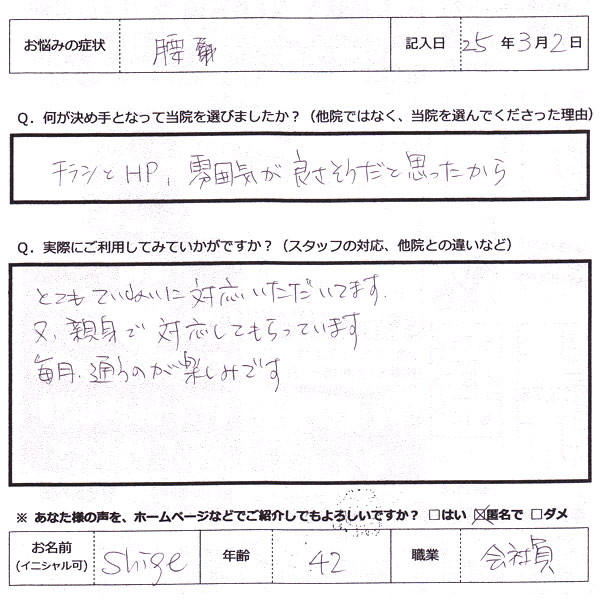 お悩みの症状 腰痛 記入日 25年3月2日
Q．何が決め手となって当院を選びましたか？（他院ではなく、当院を選んでくださった理由）
チラシとHP, 雰囲気が良さそうだと思ったから
Q．実際にご利用してみていかがですか？（スタッフの対応、他院との違いなど）
とてもていねいに対応いただいてます.
又, 親身で対応してもらっています.
毎月. 通うのが楽しみです
※ あなた様の声を、ホームページなどでご紹介してもよろしいですか？ □はい ☒匿名で □ダメ
お名前 Shige 年齢 42 職業 会社員
(イニシャル可)